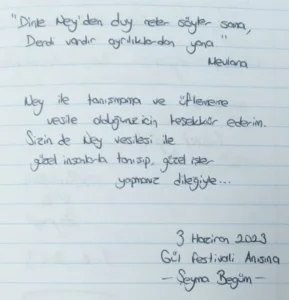 "Dinle Ney'den duy neler söyler sana,
Derdi vardır ayrılıklardan yana"
Mevlana
Ney ile tanışmama ve üflememe
vesile olduğunuz için teşekkür ederim.
Sizin de Ney vesilesi ile
güzel insanlarla tanışıp, güzel işler
yapmanız dileğiyle...
3 Haziran 2023
Gül Festivali Anısına
- Şeyma Begüm -